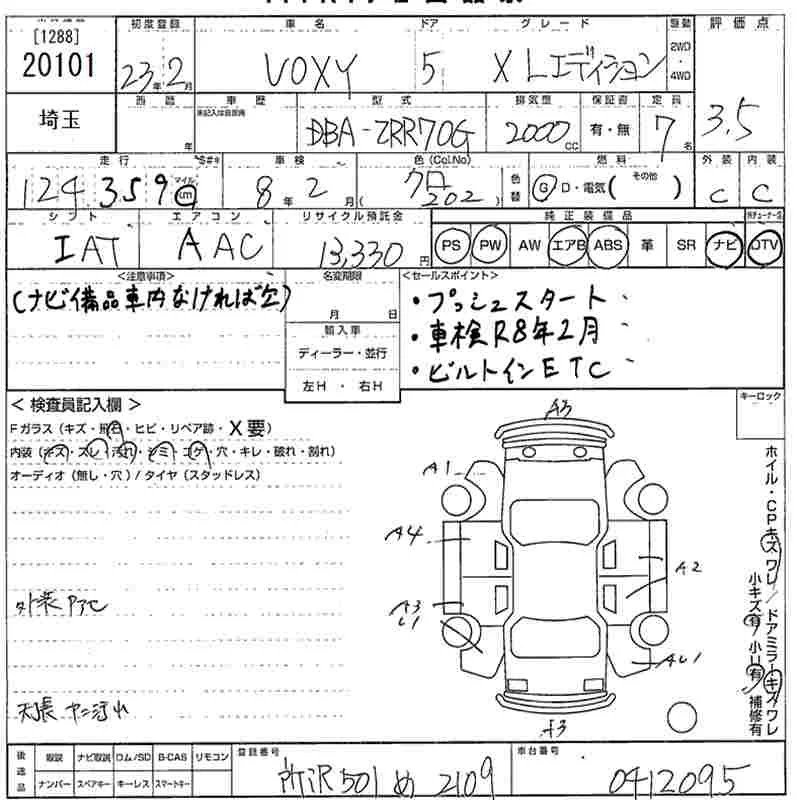 [1288]
20101
初度登録
23年2月
車名
VOXY
ドア
5
グレード
X Lエディション
駆動
2WD
・
4WD
評価点
3.5
埼玉
西暦
年
車歴
未記入は自家用
型式
DBA-ZRR70G
排気量
2000cc
保証書
有・無
定員
7名
走行
124,359
マイル
km
S#*
車検
8年2月
色(Col.No)
クロ
(202)
色替
燃料
G D・電気( その他 )
外装
C
内装
C
シフト
IAT
エアコン
AAC
リサイクル預託金
13,330円
純正装備品
PS PW AW エアB ABS 革 SR ナビ
DTV
<注意事項>
(ナビ備品車内なければ欠)
名変期限
月 日
輸入車
ディーラー・並行
左H・右H
<セールスポイント>
・プッシュスタート
・車検R8年2月
・ビルトインETC
<検査員記入欄>
Fガラス(キズ・飛石・ヒビ・リペア跡・X要)
内装(キズ・スレ・汚れ・シミ・コゲ・穴・キレ・破れ・割れ)
オーディオ(無し・穴)/タイヤ(スタッドレス)
外装
天張 ヤニ汚れ
キーロック
A3
A1
A4
A2
A3
A3
ホイル・CPキズワレ/ドアミラーキズワレ
小キズ有/小U有/補修有
後送品
取説 ナビ取説 ロム/SD B-CAS リモコン
ナンバー スペアキー キーレス スマートキー
登録番号
所沢501め2109
車台番号
0412095